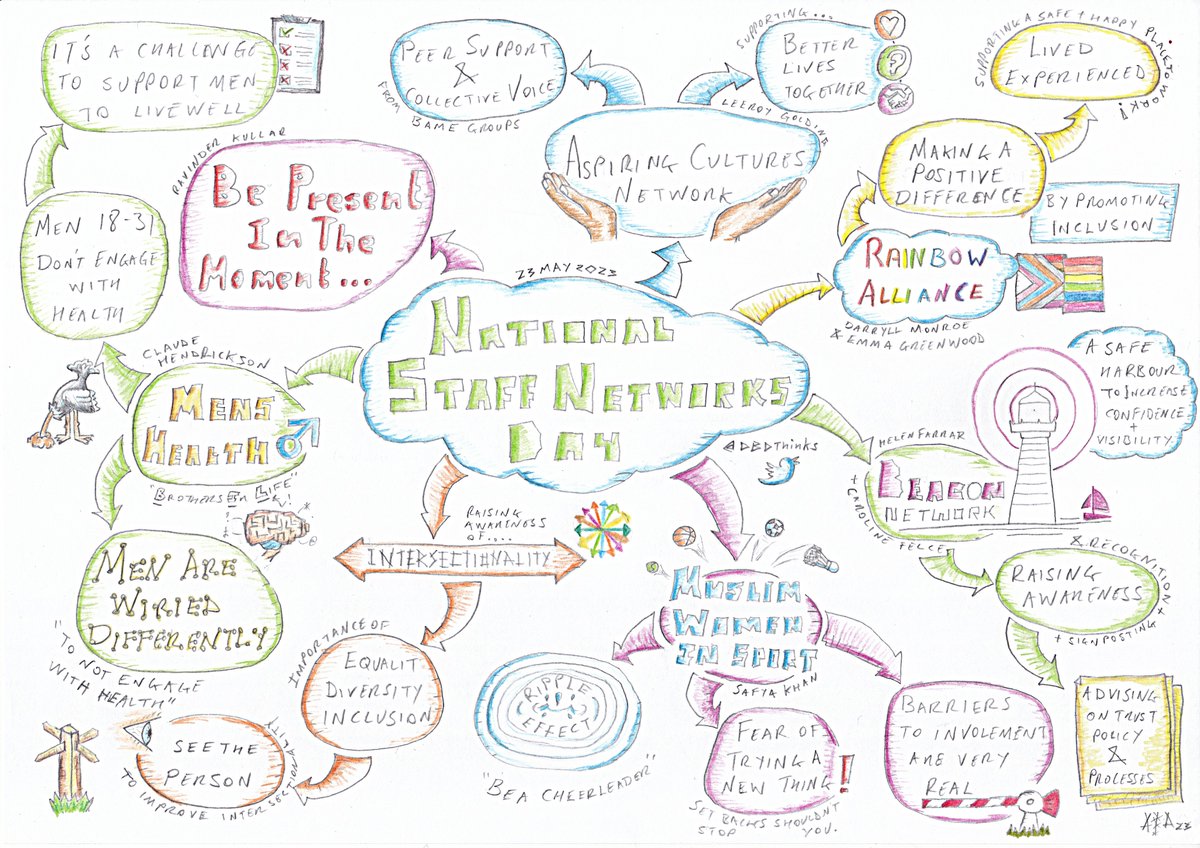 23 MAY 2023
NATIONAL
STAFF NETWORKS
DAY
@DBDThinks
RAVINDER KULLAR
BE PRESENT
IN THE
MOMENT...
ASPIRING CULTURES
NETWORK
LEEROY GOLDING
PEER SUPPORT
&
COLLECTIVE VOICE
FROM BAME GROUPS
SUPPORTING...
BETTER
LIVES
TOGETHER
RAINBOW
ALLIANCE
DARRYLL MONROE
& EMMA GREENWOOD
MAKING A
POSITIVE
DIFFERENCE
BY PROMOTING
INCLUSION
LIVED
EXPERIENCED
SUPPORTING A SAFE + HAPPY PLACE TO WORK!
HELEN FARRAR
BEACON
NETWORK
+ CAROLINE FELCE
A SAFE
HARBOUR
TO INCREASE
CONFIDENCE
+
VISIBILITY
RAISING
AWARENESS
& RECOGNITION +
+ SIGNPOSTING
ADVISING
ON TRUST
POLICY
&
PROCESSES
MUSLIM
WOMEN
IN SPORT
SAFYA KHAN
BARRIERS
TO INVOLEMENT
ARE VERY
REAL
FEAR OF
TRYING A
NEW THING
!
SET BACKS SHOULDN'T
STOP YOU.
RIPPLE
EFFECT
"BE A CHEERLEADER"
RAISING
AWARENESS
OF....
INTERSECTIONALITY
IMPORTANCE OF
EQUALIT
DIVERSITY
INCLUSION
SEE THE
PERSON
TO IMPROVE INTERSECTIONALITY
CLAUDE
HENDRICKSON
MENS
HEALTH
"BROTHERS IN LIFE"
MEN 18-31
DON'T ENGAGE
WITH
HEALTH
IT'S A CHALLENGE
TO SUPPORT MEN
TO LIVEWELL
MEN ARE
WIRIED
DIFFERENTLY
"TO NOT ENGAGE
WITH HEALTH"